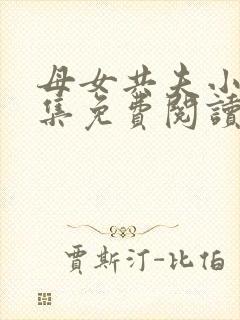 母女共夫小
集免費閱讀
賈斯汀-比伯